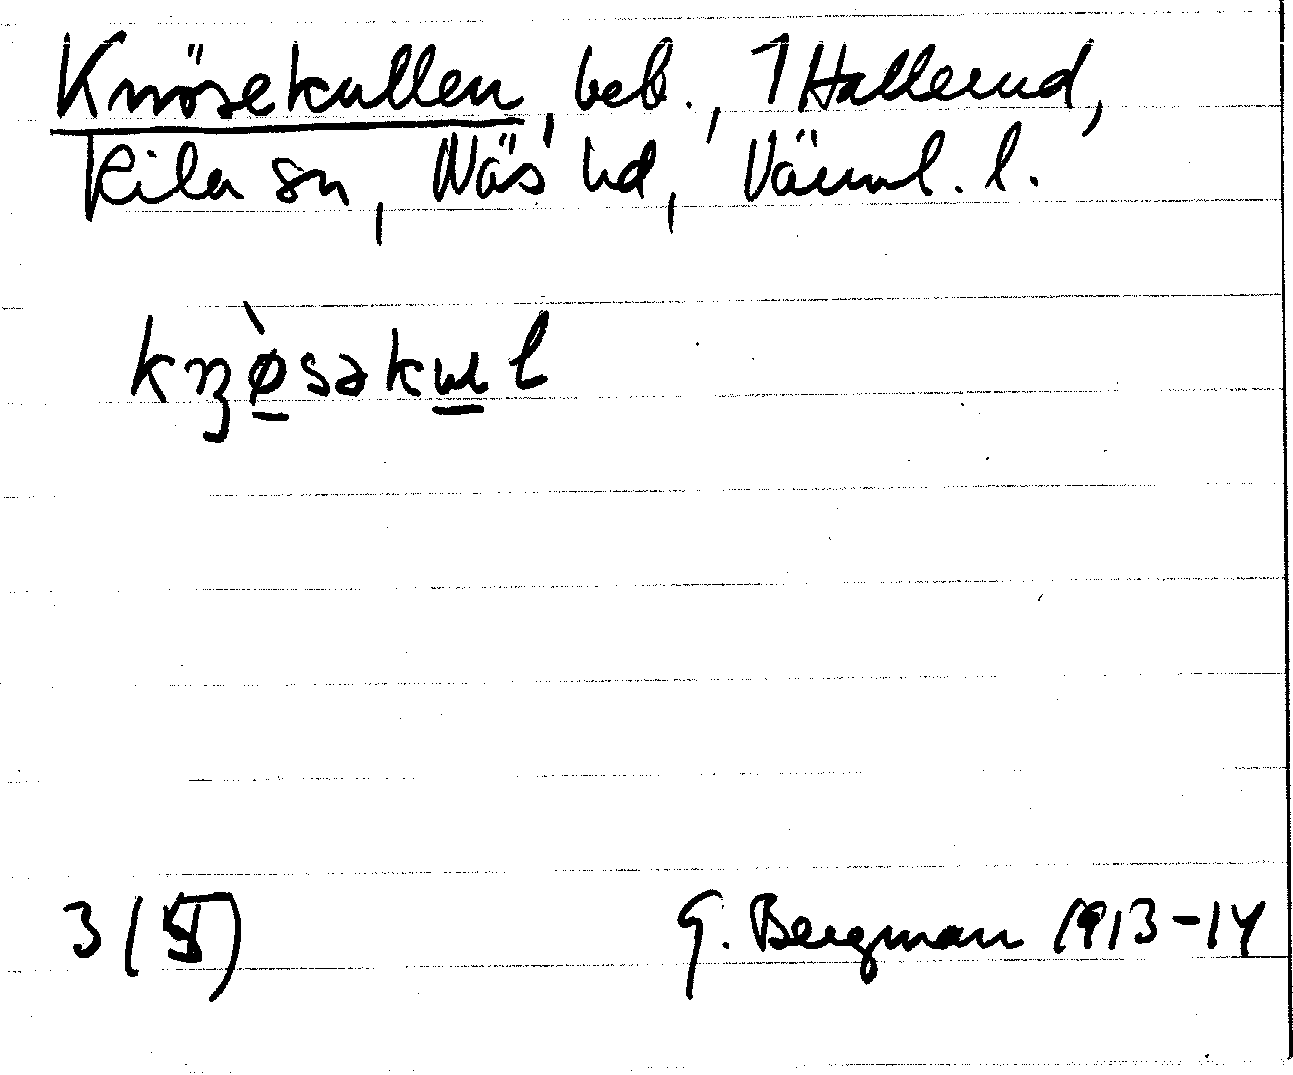 Knösekullen, beb., 1 Hallerud,
Kila sn, Näs hd, Värml. l.
knø̠̀səkɯ̠l
3 (
G. Bergman 1913-14